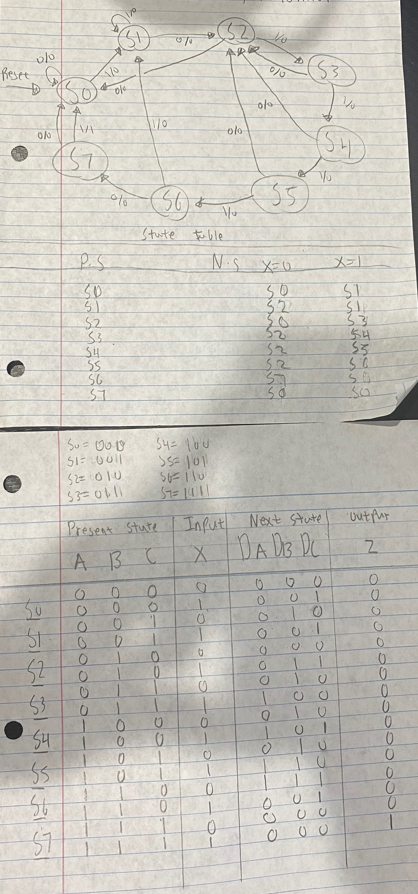 1/0
S1
0/0
S2
1/0
0/0
Preset
S0
1/0
0/0
0/0
S3
0/0
1/0
0/0
1/1
1/0
0/0
S4
S7
0/0
S6
1/0
S5
1/0
State table
P.S N.S X=0 X=1
S0 S0 S1
S1 S2 S1
S2 S0 S3
S3 S2 S4
S4 S2 S5
S5 S2 S6
S6 S7
S7 S0 S0
S0= 000 S4= 100
S1= 001 S5= 101
S2= 010 S6= 110
S3= 011 S7= 111
Present State Input Next State Output
A B C X DA DB DC Z
0 0 0 0 0 0 0 0
S0 0 0 0 1 0 0 1 0
0 0 1 0 0 1 0 0
S1 0 0 1 1 0 0 1 0
0 1 0 0 0 0 0 0
S2 0 1 0 1 0 1 1 0
0 1 1 0
S3 0 1 1 1 1 0 0 0
1 0 0 0 0 1 0 0
S4 1 0 0 1 1 0 1 0
1 0 1 0 0 1 0 0
S5 1 0 1 1 1 1 0 0
1 1 0 0 1 1 1 0
S6 1 1 0 1 0 0 1 0
1 1 1 0 0 0 0 0
S7 1 1 1 1 0 0 0 1